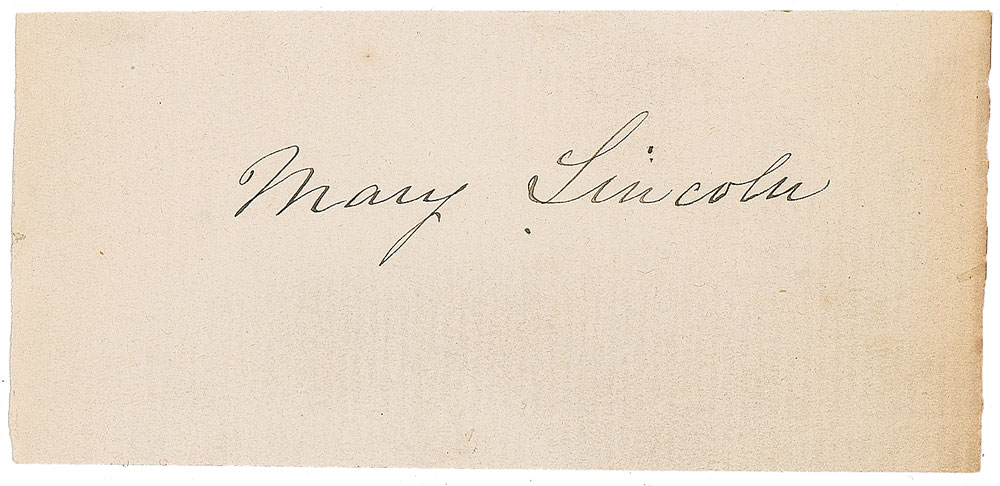 Mary Lincoln